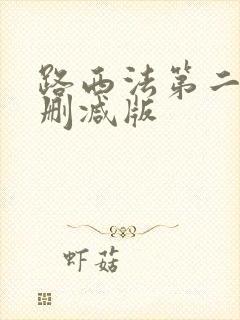 路西法第二
删减版
虾菇